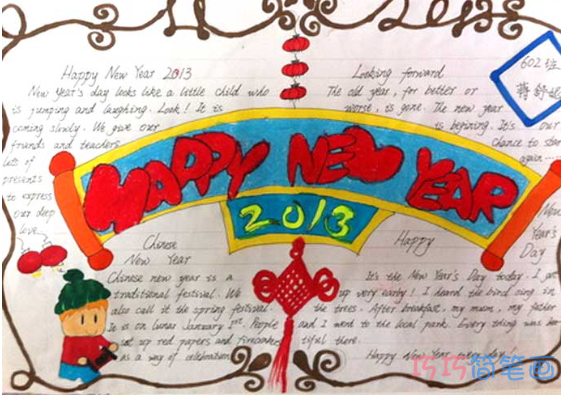 Happy New Year 2013
New Year's day looks like a little child who
is jumping and laughing. Look! It is
coming slowly. We give our
friends and teachers
lots of
presents
to express
our deep
love
Looking forward
The old year, for better or
worse, is gone. The new year
is begining. It's our
chance to star
again
602班
HAPPY NEW YEAR
2013
Chinese
New Year
Chinese new year is a
traditional festival. We
also call it the spring festival
It is on lunar January 1st. People
set up red papers and firecracker
as a way of celebration
Happy
New
Year's
Day
It's the New Year's Day today. I got
up very early! I heard the bird sing in
the trees. After breakfast, my mum, my father
and I went to the local park. Every thing was
tiful there.
Happy New Year every day
巧巧简笔画